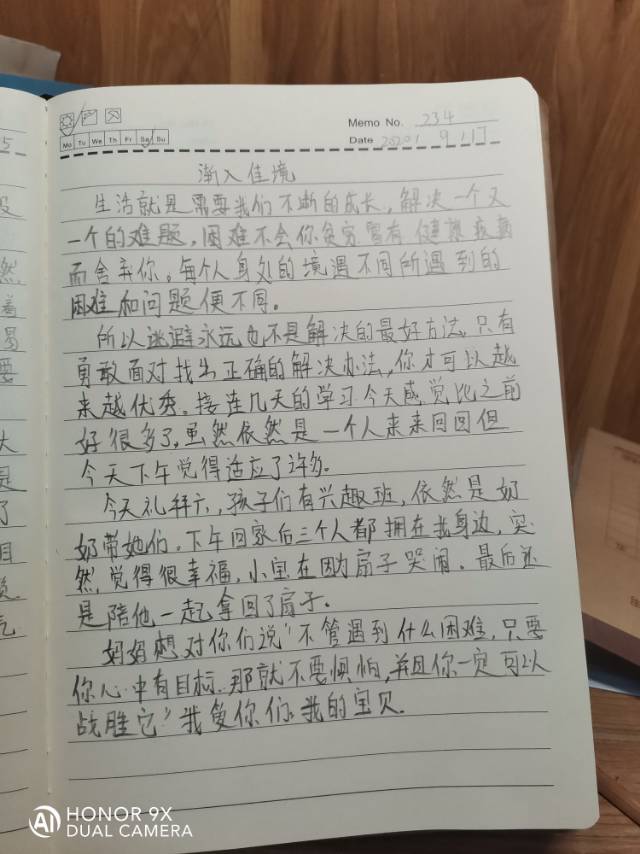 Memo No. 234
Mo Tu We Th Fr Sa Su
Date 2020 9 117
渐入佳境
生活就是需要我们不断的成长,解决一个又
一个的难题,困难不会你贫穷富有 健康疾病
而舍弃你。每个人身处的境遇不同所遇到的
困难和问题便不同。
所以逃避永远也不是解决的最好方法,只有
勇敢面对找出正确的解决办法,你才可以越
来越优秀。接连几天的学习今天感觉比之前
好很多了,虽然依然是一个人来来回回但
今天下午觉得适应了许多。
今天礼拜六,孩子们有兴趣班,依然是奶
奶带她们,下午回家后三个人都拥在我身边,突
然,觉得很幸福,小宝在因为扇子哭闹。最后还
是陪他一起拿回了扇子。
妈妈想对你们说"不管遇到什么困难,只要
你心中有目标,那就不要惧怕,并且你一定可以
战胜它"我爱你们,我的宝贝.
5
然,
着
要
大
是
了
AI HONOR 9X
DUAL CAMERA